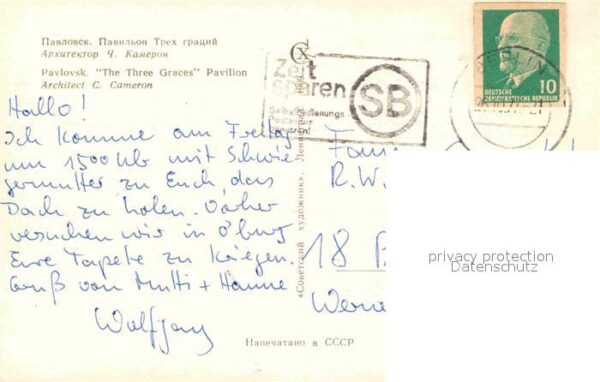 Павловск. Павильон Трех граций
Архитектор Ч. Камерон
Pavlovsk. "The Three Graces" Pavilion
Architect C. Cameron
Hallo!
Ich komme am Freitag
um 1500 Uhr mit Schwie
germutter zu Euch, das
Dach zu holen. Vorher
versuchen wir in O'burg
Eure Tapete zu kriegen.
Gruß von Mutti + Hanne
Wolfgang
Напечатано в СССР
«Советский художник».
Zeit
sparen
SB
Selbstbedienungs-
Postämter
BERLIN
10
DEUTSCHE
DEMOKRATISCHE REPUBLIK
R.W.
18
privacy protection
Datenschutz